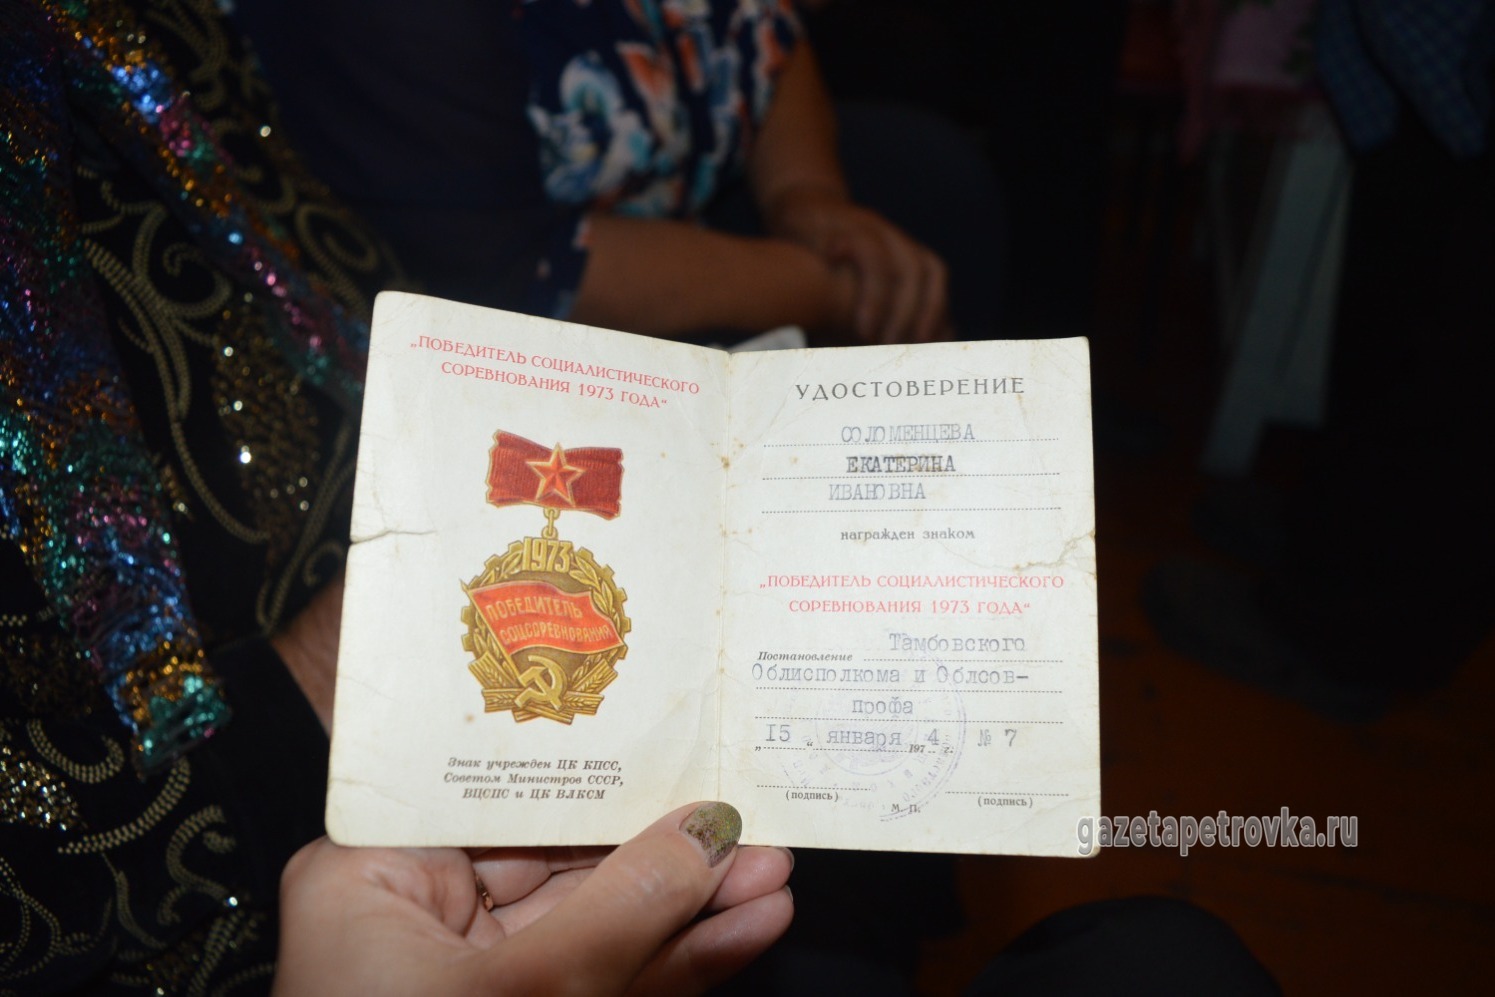 „ПОБЕДИТЕЛЬ СОЦИАЛИСТИЧЕСКОГО
СОРЕВНОВАНИЯ 1973 ГОДА“
1973
ПОБЕДИТЕЛЬ
СОЦСОРЕВНОВАНИЯ
Знак учрежден ЦК КПСС,
Советом Министров СССР,
ВЦСПС и ЦК ВЛКСМ
УДОСТОВЕРЕНИЕ
СОЛОМЕНЦЕВА
ЕКАТЕРИНА
ИВАНОВНА
награжден знаком
„ПОБЕДИТЕЛЬ СОЦИАЛИСТИЧЕСКОГО
СОРЕВНОВАНИЯ 1973 ГОДА“
Постановление Тамбовского
Облисполкома и Облсов-
профа
„15“ января 1974 г. № 7
(подпись) М. П. (подпись)
gazetapetrovka.ru